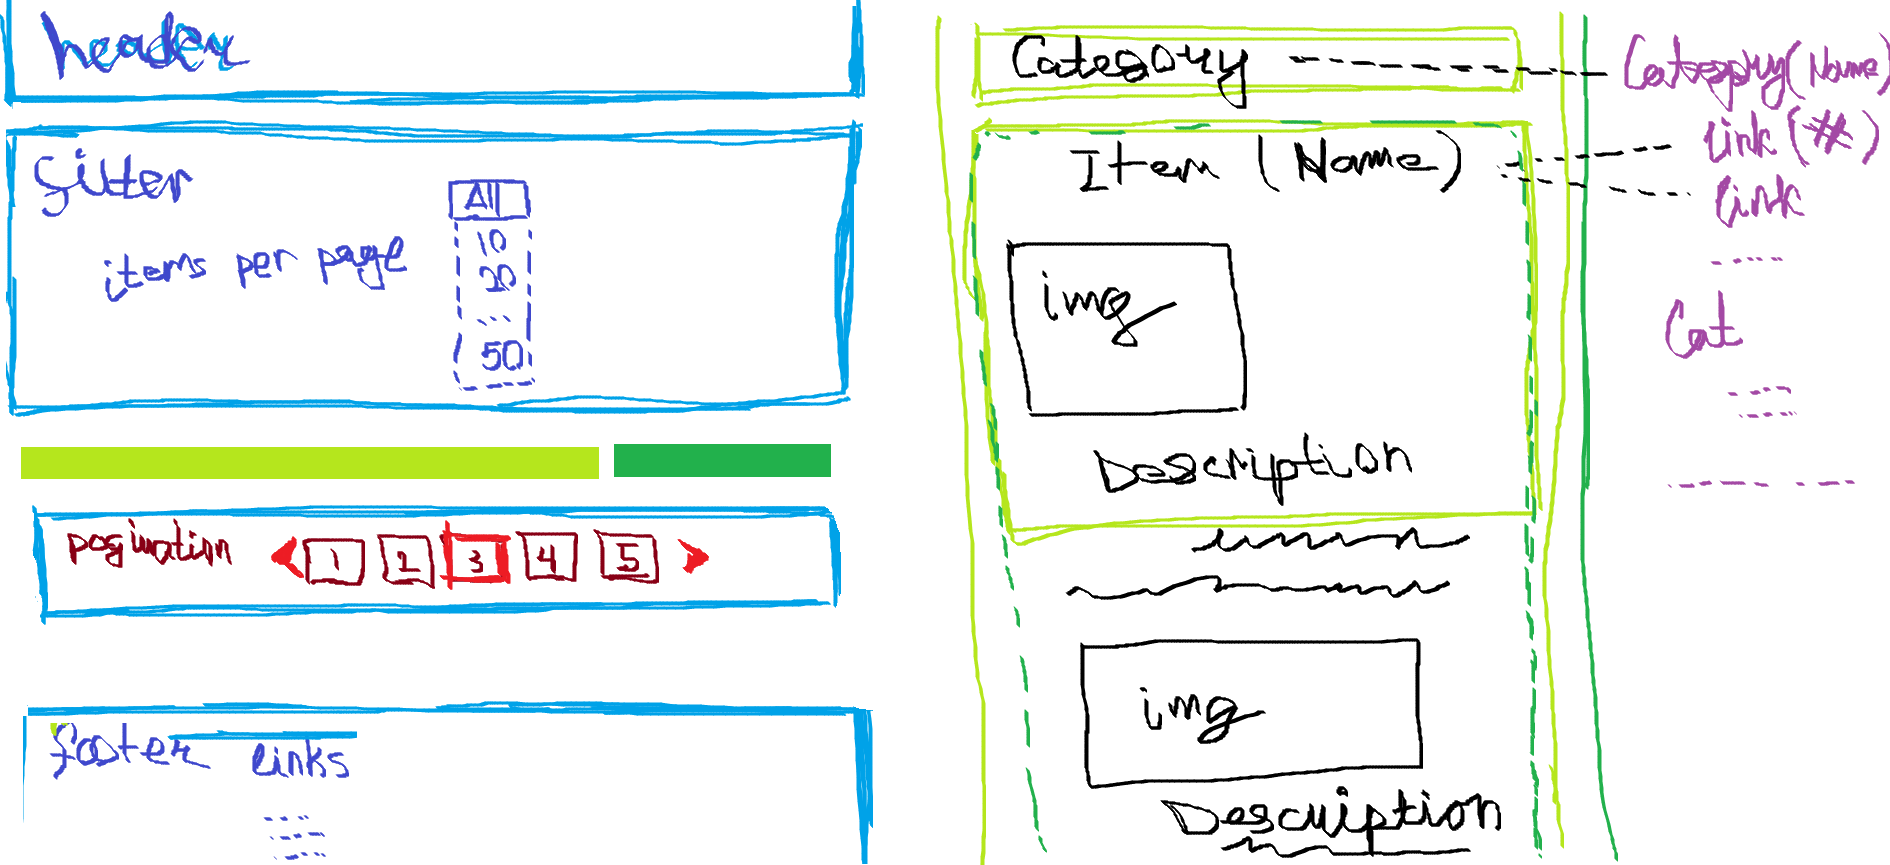 header
filter
All
items per page
10
20
...
50
pagination
1 2 3 4 5
footer links
Category
Item (Name)
img
Description
img
Description
Category(Name)
link (#)
link
Cat